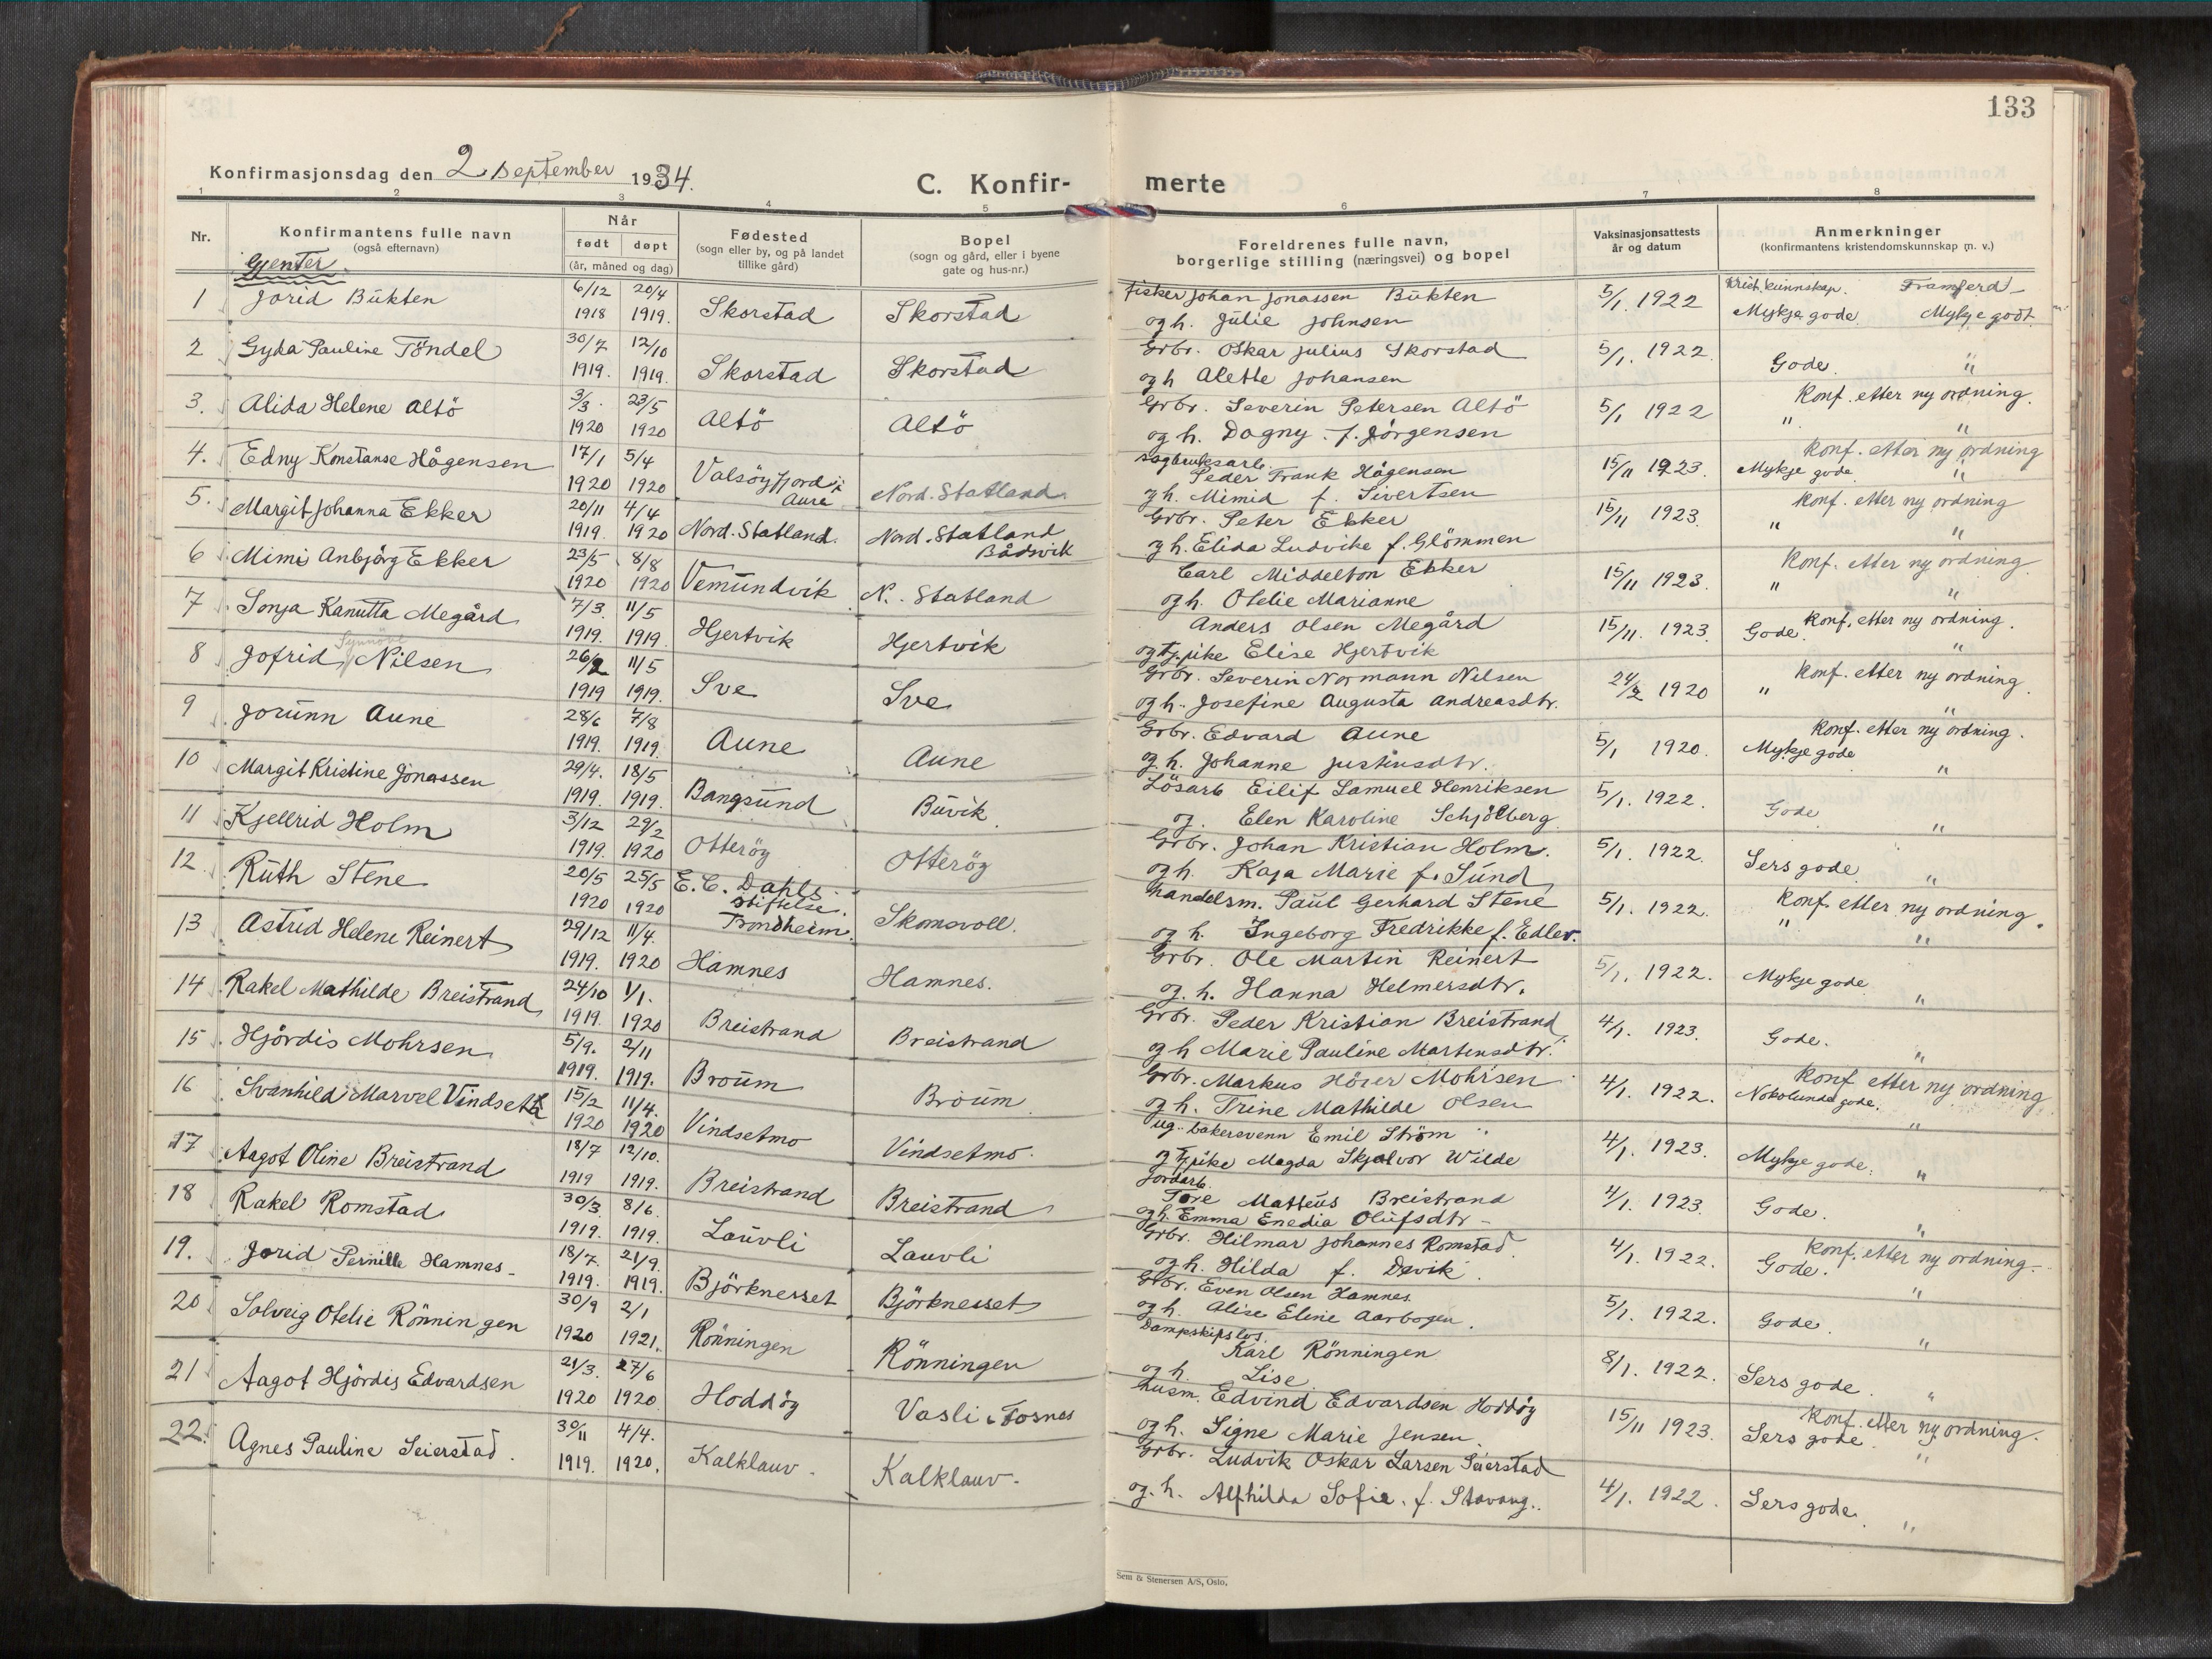 133
Konfirmasjonsdag den 2. September 1934.
C. Konfir- merte
1 2 3 4 5 6 7 8
Nr. Konfirmantens fulle navn (også efternavn) Når født døpt (år, måned og dag) Fødested (sogn eller by, og på landet tillike gård) Bopel (sogn og gård, eller i byene gate og hus-nr.) Foreldrenes fulle navn, borgerlige stilling (næringsvei) og bopel Vaksinasjonsattests år og datum Anmerkninger (konfirmantens kristendomskunnskap m. v.)
Gjenter
Krist. kunnskap. Framferd
1 Jorid Bukten 6/12 1918 20/4 1919. Skorstad Skorstad fisker Johan Jonassen Bukten 5/1 1922 Mykje gode. Mykje godt
og h. Julie Johnsen
2 Gyda Pauline Töndel 30/7 1919. 12/10 1919. Skorstad Skorstad Grbr. Oskar Julius Skorstad 5/1. 1922. Gode. "
og h Alette Johansen
3. Alida Helene Altö 3/3. 1920 23/5 1920 Altö Altö Grbr. Severin Petersen Altö 5/1 1922 Konf. etter ny ordning.
og h. Dagny f. Jörgensen " "
4. Edny Konstanse Hågensen 17/1 1920 5/4 1920 Valsöyfjord i Aure Nord. Statland sagbruksarb. Peder Frank Hågensen 15/11 1923. Konf. etter ny ordning
og h. Mimid f. Sivertsen Mykje gode "
5. Margit Johanna Ekker 20/11 1919. 4/4 1920 Nord. Statland. Nord. Statland Bådsvik Grbr. Peter Ekker 15/11 1923. Konf. etter ny ordning
og h. Elida Ludvike f. Glömmen " "
6 Mimi Anbjörg Ekker 23/5 1920 8/8 1920 Vemundvik N. Statland Carl Middelton Ekker 15/11 1923. Konf. etter ny ordning
og h. Otelie Marianne " "
7 Sonja Kanutta Megård 7/3. 1919. 11/5 1919. Hjertvik Hjertvik Anders Olsen Megård 15/11. 1923. Gode. Konf. etter ny ordning.
og tj. pike Elise Hjertvik "
8 Jofrid Synnöve Nilsen 26/2 1919 11/5 1919. Sve Sve Grbr. Severin Normann Nilsen 24/2 1920 Konf. etter ny ordning.
og h. Josefine Augusta Andreasdtr. " "
9 Jorunn Aune 28/6 1919. 7/8 1919. Aune Aune Grbr. Edvard Aune 5/1 1920. Konf. etter ny ordning.
og h. Johanne Justinsdtr. Mykje gode "
10 Margit Kristine Jonassen 29/4. 1919. 18/5 1919. Bangsund Buvik Lösarb Eilif Samuel Henriksen 5/1. 1922. Gode "
og. Elen Karoline Schjölberg
11 Kjellrid Holm 3/12 1919. 29/2 1920 Otteröy Otteröy Grbr. Johan Kristian Holm. 5/1. 1922. Sers gode. "
og h. Kaja Marie f. Sund
12. Ruth Stene 20/5 1920 25/5 1920 E. C. Dahls stiftelse. Trondheim. Skomsvoll. handelsm. Paul Gerhard Stene 5/1. 1922. Konf. etter ny ordning.
og h. Ingeborg Fredrikke f. Edler. " "
13 Astrid Helene Reinert 29/12 1919. 11/4. 1920 Hamnes Hamnes. Grbr. Ole Martin Reinert 5/1. 1922. Mykje gode "
og. h. Hanna Helmersdtr.
14 Rakel Mathilde Breistrand 24/10 1919. 1/1. 1920 Breistrand Breistrand Grbr. Peder Kristian Breistrand 4/1. 1923. Gode. "
og h Marie Pauline Martinsdtr.
15 Hjördis Mohrsen 5/9. 1919. 2/11 1919. Broum Broum Grbr. Markus Höier Mohrsen 4/1. 1922. Konf etter ny ordning
og h. Trine Mathilde Olsen Nokolunde gode. "
16 Svanhild Marvel Vindseth 15/2 1920 11/4. 1920 Vindsetmo Vindsetmo. ug. bakersvenn Emil Ström 4/1. 1923. Mykje gode. "
og tj pike Magda Skjalvor Wilde
17 Aagot Oline Breistrand 18/7 1919 12/10. 1919. Breistrand Breistrand Jordarb. Tore Matteus Breistrand 4/1. 1923. Gode. "
og h. Emma Enedia Olufsdtr
18 Rakel Romstad 30/3. 1919. 8/6. 1919. Lauvli Lauvli Grbr. Hilmar Johannes Romstad. 4/1. 1922. Konf. etter ny ordning.
og h. Hilda f. Devik Gode. "
19. Jorid Pernille Hamnes 18/7. 1919. 21/9. 1919. Björknesset Björknesset Grbr. Even Olsen Hamnes. 5/1. 1922. Gode. "
og h. Alise Eline Aarbogen.
20 Solveig Otelie Rönningen 30/9 1920 2/1 1921. Rönningen Rönningen Dampskipslos. Karl Rönningen 8/1. 1922. Sers gode. "
og h. Lise
21 Aagot Hjördis Edvardsen 21/3. 1920 27/6 1920 Hoddöy Vasli i Fosnes husm. Edvind Edvardsen Hoddöy 15/11 1923. Konf. etter ny ordning.
og h. Signe Marie Jensen Sers gode "
22. Agnes Pauline Seierstad. 30/11 1919. 4/4. 1920. Kalklauv. Kalklauv. Grbr. Ludvik Oskar Larsen Seierstad 4/1. 1922. Sers gode. "
og. h. Alfhilda Sofie. f. Stavang.
Sem & Stenersen A/S, Oslo.